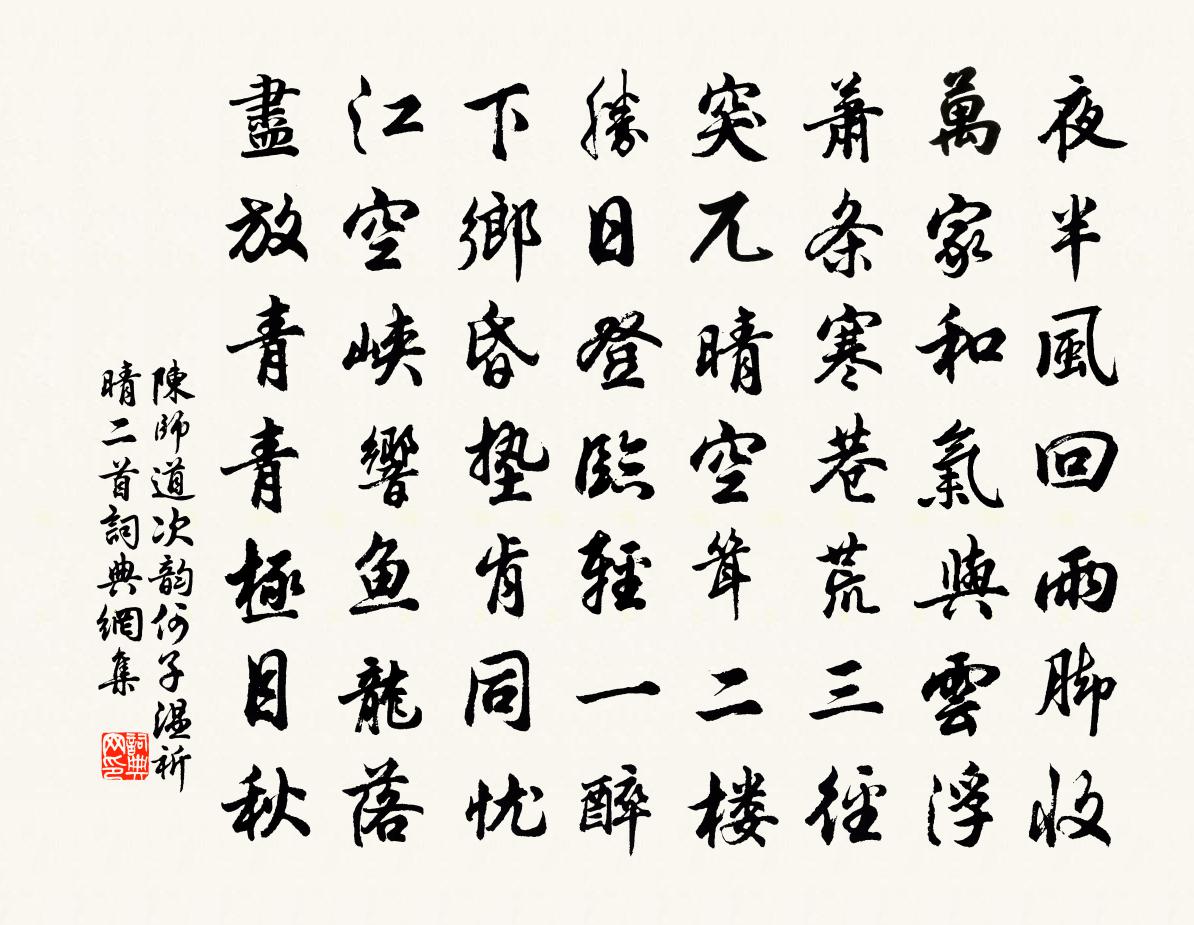 夜半風回雨脚收
萬家和氣與雲浮
蕭条寒巷荒三徑
突兀晴空聳二楼
勝日登臨輕一醉
下鄉昏墊肯同忧
江空峡響魚龍落
盡放青青極目秋
陳師道次韵何子温祈
晴二首詞典網集
詞典
网印